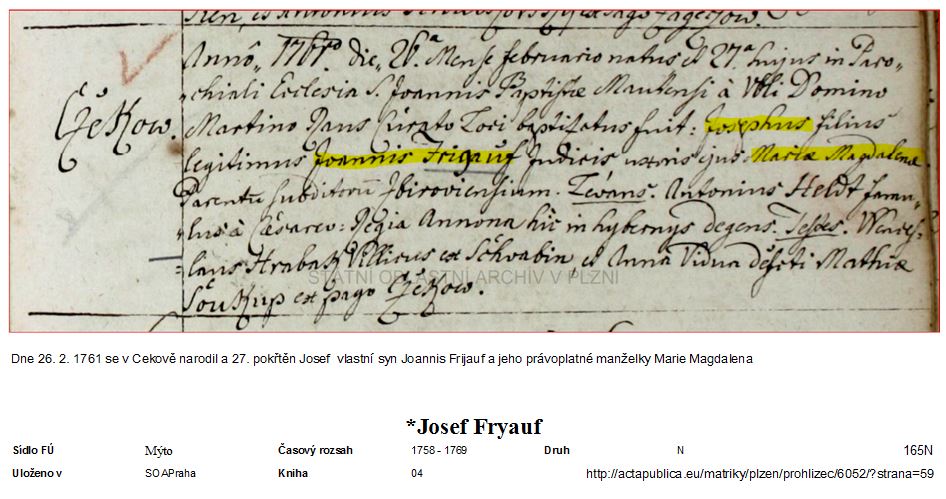 Czekow.
Annô, 1761mo die, 26ta Mense februario natus et 27a hujus in Paro-
-chiali Ecclesia S. Joannis Baptistæ Mautensi à Vbli Domino
Martino Raus Curato Loci baptizatus fuit: Josephus filius
legitimus Joannis Frigauf Judicis uxoris ejus Mariæ Magdalenæ
Parentũ subditorũ Zbiroviensium. Levans. Antonius Heldt famu-
-lus à Cæsareo: Regia Annona hic in hybernys degens. Testes. Wences-
-laus Hrabak Villicus ex Schwabin et Anna Vidua defũcti Mathiæ
Soukup ex pago Czekow.
STÁTNÍ OBLASTNÍ ARCHÍV V PLZNI
Dne 26. 2. 1761 se v Cekově narodil a 27. pokřtěn Josef vlastní syn Joannis Frijauf a jeho právoplatné manželky Marie Magdalena
*Josef Fryauf
Sídlo FÚ Mýto Časový rozsah 1758 - 1769 Druh N 165N
Uloženo v SOAPraha Kniha 04 http://actapublica.eu/matriky/plzen/prohlizec/6052/?strana=59